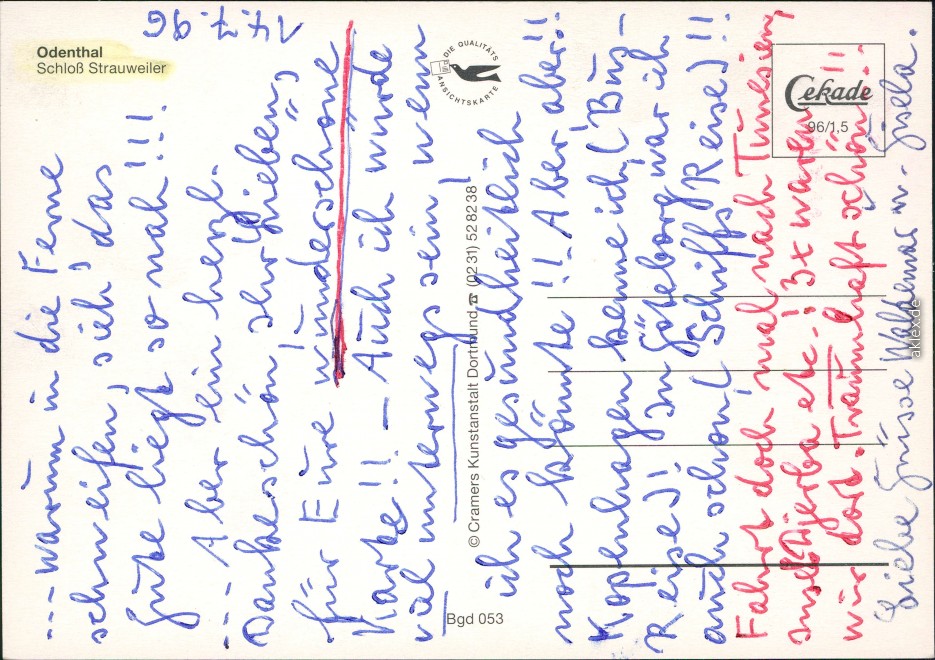 Odenthal
Schloß Strauweiler
17.7.96
... warum in die Ferne
schweifen, sieh, das
Gute liegt so nah!!!
... Aber ein herzl.
Dankeschön, Ihr Lieben,
für Eure wunderschöne
Karte!! – Auch ich würde
viel unterwegs sein, wenn
ich es gesundheitlich
noch könnte!! Aber aber!!
Kopenhagen kenne ich (Bus-
Reise)! In Göteborg war ich
auch schon! (Schiffs Reise)!!
Fahrt doch mal nach Tunesien,
Insel Djerba etc.! 3x waren
wir dort. Traumhaft schön!!
Liebe Grüsse Waldemar u. Gisela.
DIE QUALITÄTS
ANSICHTSKARTE
© Cramers Kunstanstalt Dortmund ☎ (0231) 528238
Bgd 053
Cekade
96/1,5
aklex.de